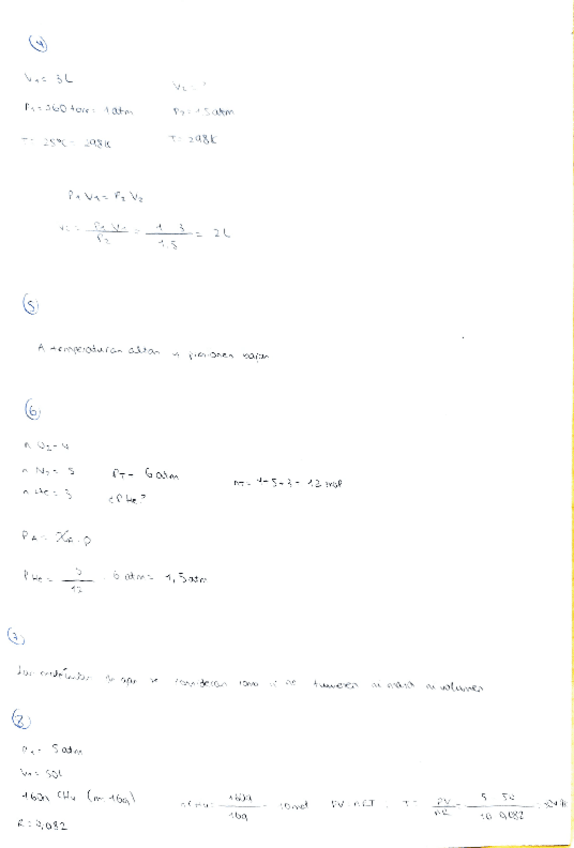 4
V₁= 3L
V₂=
P₁=760 torr= 1atm
P₂=1,5atm
T= 25ºC= 298K
T=298K
P₁V₁=P₂V₂
V₂= P₁V₁/P₂ = 1 3/1.5 = 2L
5
A temperaturas altas y presiones bajas
6
n O₂=4
n N₂= 5
n He= 3
PT= 6atm
¿PHe?
nT= 4+5+3= 12 mol
PA= XA.P
PHe= 3/12 . 6 atm= 1,5atm
7
Las moléculas de gas se consideran como si no tuvieran ni masa ni volumen
8
P₁= 5atm
V₁= 50L
160g CH₄ (m=16g)
R=0,082
nCH₄= 160g/16g = 10mol
PV=nRT
T= PV/nR = 5 50/10 0,082